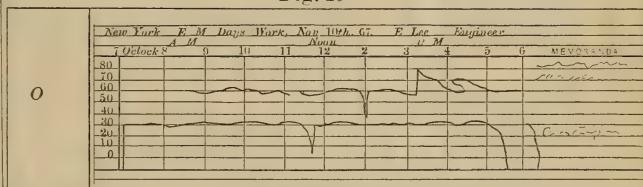 New York E M Days Work, Nov 10th. 67. E Lee Engineer
A M Noon P M
7 Oclock 8 9 10 11 12 2 3 4 5 6 MEMORANDA
80
70
60
50
40
30
20
10
0
O